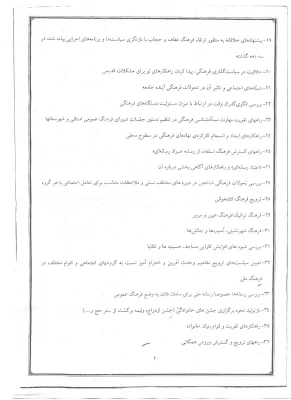 ۱۹- پیشنهادهای خلاقانه به منظور ارتقاء فرهنگ عفاف و حجاب با بازنگری سیاست‌ها و برنامه‌های اجرایی پیاده شده در
سه دهه گذشته
۲۰- خلاقیت در سیاست‌گذاری فرهنگی: پیدا کردن راهکارهای نو برای مشکلات قدیمی
۲۱- شبکه‌های اجتماعی و تاثیر آن در تحولات فرهنگی آینده جامعه
۲۲- بررسی الگوی‌گذران وقت در ارتباط با میزان مسئولیت دستگاه‌های فرهنگی
۲۳- راههای تقویت مهارت مسأله‌شناسی فرهنگی در تنظیم دستور جلسات شورای فرهنگ عمومی استانی و شهرستانها
۲۴- راهکارهای ایجاد و انسجام کارکردی نهادهای فرهنگی در سطوح محلی
۲۵- راههای گسترش فرهنگ استفاده از رسانه «سواد رسانه‌ای»
۲۶- «اعتیاد رسانه‌ای» و راهکارهای آگاهی بخشی درباره آن
۲۷- بررسی تحولات فرهنگی شاخص در دوره های مختلف سنی و ملاحظات متناسب برای تعامل اجتماعی با هر گروه
۲۸- ترویج فرهنگ کتابخوانی
۲۹- فرهنگ ترافیک/فرهنگ عبور و مرور
۳۰- فرهنگ شهرنشینی، آسیب‌ها و چالش‌ها
۳۱- بررسی شیوه های افزایش کارایی مساجد، حسینیه ها و تکایا
۳۲- تعیین سیاست‌های ترویج مفاهیم وحدت آفرین و احترام آمیز نسبت به گروههای اجتماعی و اقوام مختلف در
فرهنگ ملی
۳۳- بررسی رسانه‌ها خصوصا رسانه ملی برای سامان دادن به وضع فرهنگ عمومی
۳۴- بازتولید نحوه برگزاری جشن های خانوادگی (جشن ازدواج، ولیمه برگشت از سفر حج و...)
۳۵- راهکارهای تقویت و قوام بنیان خانواده
۳۶- راههای ترویج و گسترش ورزش همگانی